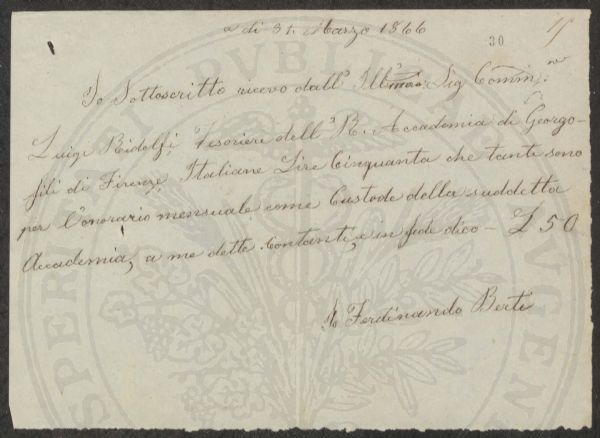 a di 31. Marzo 1866
30
Io Sottoscritto ricevo dall' Ill.mo Sig Comm.
Luigi Ridolfi Tesoriere dell' R. Accademia di Georgo-
fili di Firenze Italiane Lire Cinquanta che tante sono
per l'onorario mensuale come Custode della suddetta
Accademia, a me dette Contanti, e in fede dico — £ 50
Io Ferdinando Berti
PROSPERITATI PUBLICAE AUGENDAE